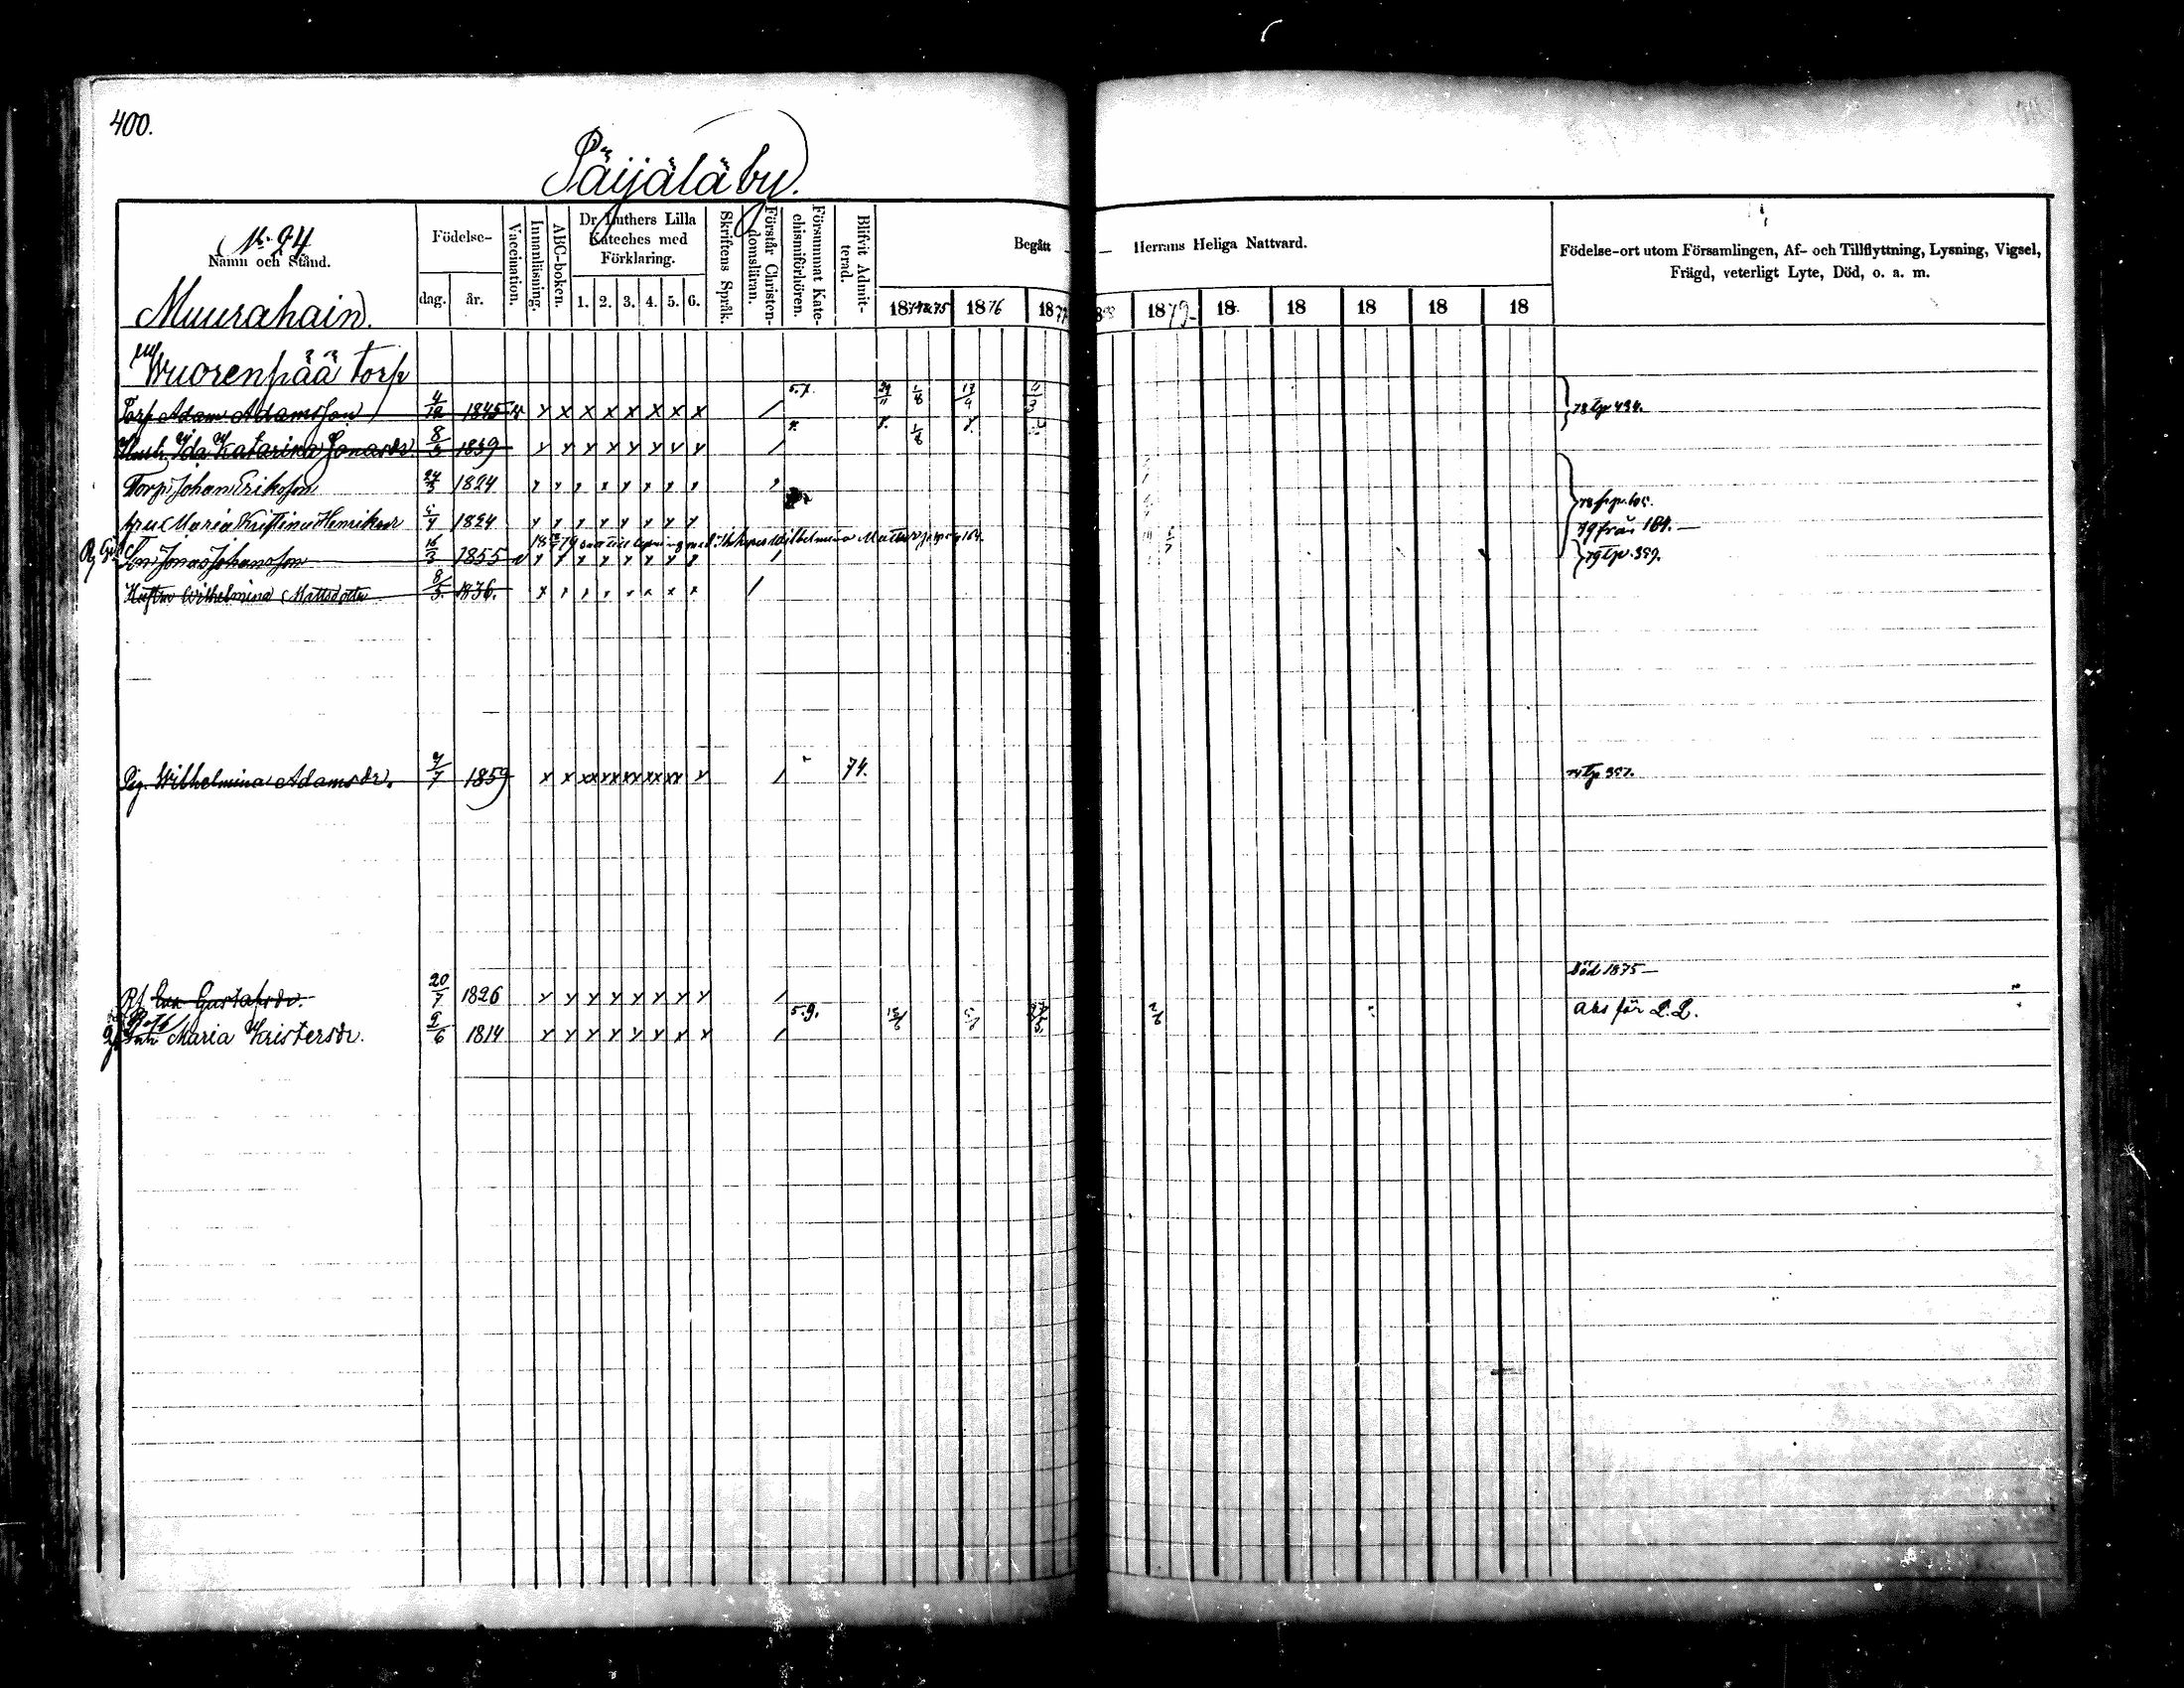 400.
Päijälä by.
No. 24
Namn och Stånd.
Muurahain
Födelse-
dag.
år.
Vaccination.
Innanläsning.
ABC-boken.
Dr Luthers Lilla
Kateches med
Förklaring.
1. 2. 3. 4. 5. 6.
Skriftens Språk.
Förstår Christen-
domsläran.
Försummat Kate-
chismiförhören.
Blifvit Admit-
terad.
Begått Herrans Heliga Nattvard.
1874 & 75 1876 1877 1879 18 18 18 18 18
Födelse-ort utom Församlingen, Af- och Tillflyttning, Lysning, Vigsel,
Frägd, veterligt Lyte, Död, o. a. m.
Wuorenpää torp
Torp Adam Adamsson 4/12 1845 v x x x x x x x x / 5.7. 29/11 1/8 17/9 78 tp 434.
Hustr. Ida Katarina Jonasdr. 8/3 1839 x x x x x x x x / 1/8
Torp. Johan Eriksson 24/3 1824 x x x x x x x x
Maria Kristina Henriksdr 1824 x x x x x x x x 79 från 164.
Son Jonas Johansson 16/3 1855 v x x x x x x x x / 79 tp. 359.
Wilhelmina Mattsdotter 8/3 1836. x x x x x x x x /
Pig. Wilhelmina Adamsdr. 7/7 1859 x x xx xx xx xx xx x / 74. 74 tp 357.
Död 1875
Rt Eva Gustafsdr. 20/7 1826 x x x x x x x x /
Maria Kristersdr. 9/6 1814 x x x x x x x x / 5.9. 2/6 Abs för L. L.